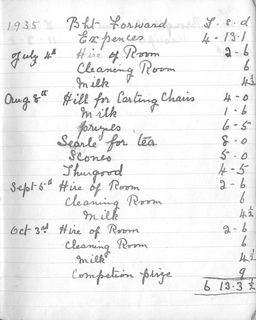 1935 Bht Forward £. s. d
Expences 4 - 13. 1
July 4th Hire of Room 2 - 6
Cleaning Room 6
Milk 4½
Aug 8th Hill for Carting Chairs 4 - 0
Milk 1 - 6
prizes 6 - 5
Searle for tea 8. 0
Scones 5. 0
Thurgood 4 - 5
Sept 5th Hire of Room 2 - 6
Cleaning Room 6
Milk 4½
Oct 3rd Hire of Room 2 - 6
Cleaning Room 6
Milk 4½
Competion prize 9
6 13 - 3½